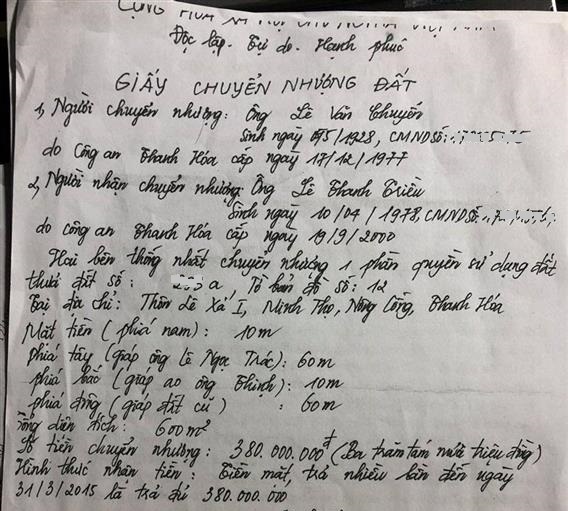 CỘNG HÒA XÃ HỘI CHỦ NGHĨA VIỆT NAM
Độc lập - Tự do - Hạnh phúc
GIẤY CHUYỂN NHƯỢNG ĐẤT
1, Người chuyển nhượng: Ông Lê Văn Chuyển
Sinh ngày /1928, CMND số:
do Công an Thanh Hóa cấp ngày 17/12/1977
2, Người nhận chuyển nhượng: Ông Lê Thanh Triều
Sinh ngày 10/04/1978, CMND số:
do công an Thanh Hóa cấp ngày 19/9/2000
Hai bên thống nhất chuyển nhượng 1 phần quyền sử dụng đất
thửa đất số: a, Tờ bản đồ số: 12
Tại địa chỉ: Thôn Lê Xá I, Minh Thọ, Nông Cống, Thanh Hóa
Mặt tiền (phía nam): 10m
phía tây (giáp ông Lê Ngọc Trác): 60m
phía bắc (giáp ao ông Thịnh): 10m
phía đông (giáp đất cũ) : 60m
Tổng diện tích: 600m²
Số tiền chuyển nhượng: 380.000.000đ (Ba trăm tám mươi triệu đồng)
Hình thức nhận tiền: Tiền mặt, trả nhiều lần đến ngày
31/3/2015 là trả đủ 380.000.000